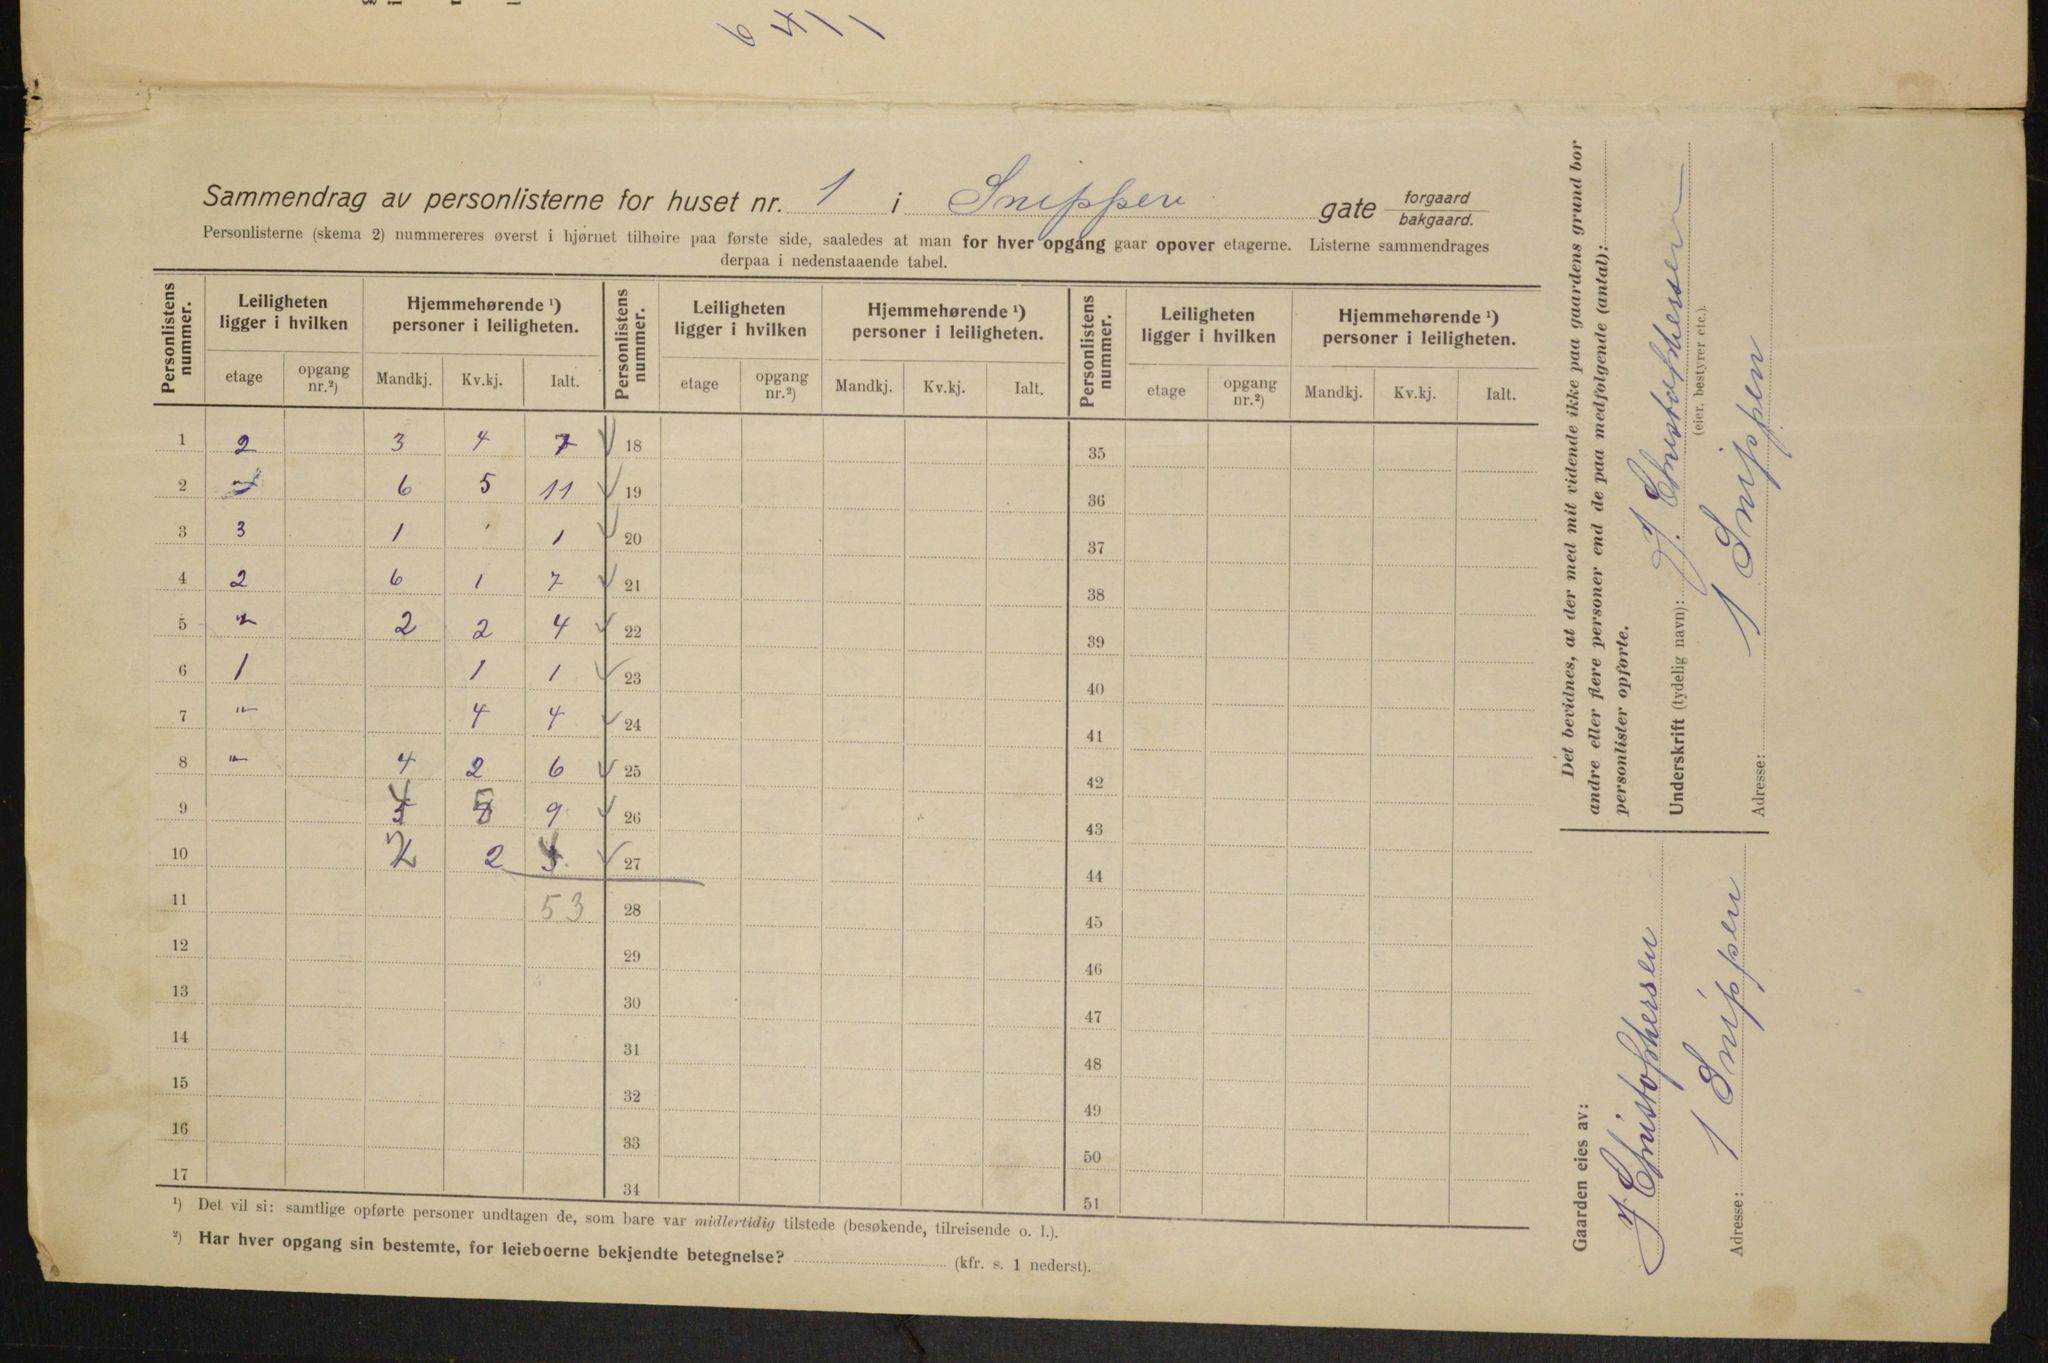 6 4 1 1
Sammendrag av personlisterne for huset nr. 1 i Snippen gate forgaard
bakgaard.
Personlisterne (skema 2) nummereres øverst i hjørnet tilhøire paa første side, saaledes at man for hver opgang gaar opover etagerne. Listerne sammendrages
derpaa i nedenstaaende tabel.
Personlistens nummer. Leiligheten ligger i hvilken Hjemmehørende ¹) personer i leiligheten. Personlistens nummer. Leiligheten ligger i hvilken Hjemmehørende ¹) personer i leiligheten. Personlistens nummer. Leiligheten ligger i hvilken Hjemmehørende ¹) personer i leiligheten.
etage opgang nr.²) Mandkj. Kv.kj. Ialt. etage opgang nr.²) Mandkj. Kv.kj. Ialt. etage opgang nr.²) Mandkj. Kv.kj. Ialt.
1 2 3 4 7 18 35
2 6 5 11 19 36
3 3 1 1 20 37
4 2 6 1 7 21 38
5 " 2 2 4 22 39
6 1 1 1 23 40
7 " 4 4 24 41
8 " 4 2 6 25 42
9 4 5 9 26 43
10 2 2 4 27 44
11 53 28 45
12 29 46
13 30 47
14 31 48
15 32 49
16 33 50
17 34 51
¹) Det vil si: samtlige opførte personer undtagen de, som bare var midlertidig tilstede (besøkende, tilreisende o. l.).
²) Har hver opgang sin bestemte, for leieboerne bekjendte betegnelse? (kfr. s. 1 nederst).
Det bevidnes, at der med mit vidende ikke paa gaardens grund bor
andre eller flere personer end de paa medfølgende (antal):
personlister opførte.
Underskrift (tydelig navn): J. Christophersen
(eier, bestyrer etc.).
Adresse: 1 Snippen
Gaarden eies av:
J. Christophersen
Adresse: 1 Snippen